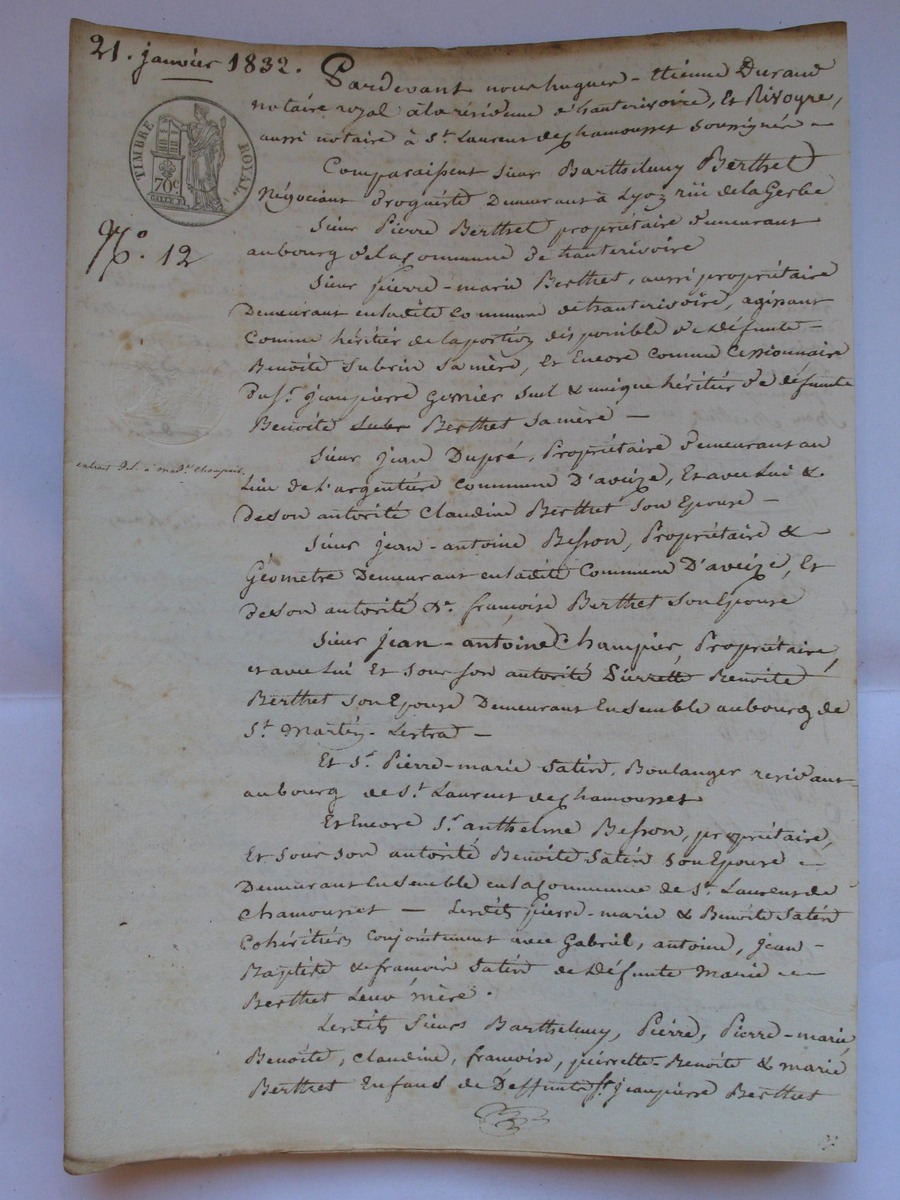 21. janvier 1832.
Pardevant nous hugues-Etienne Durand
notaire royal à la résidence d'hauterivoire, Et Rivoyre,
aussi notaire à St. Laurent de Chamousset soussignés —
TIMBRE ROYAL.
70c
Comparaissent sieur Barthelemy Berthet
Négociant Droguiste Demeurant à Lyon rüe de la Gerbe
Sieur Pierre Berthet propriétaire demeurant
au bourg de la Commune de hauterivoire
No. 12
Sieur pierre-marie Berthet, aussi propriétaire
Demeurant en ladite Commune de hauterivoire, agissant
Comme héritier de la portion disponible de défunte —
Benoite Subrin sa mère, Et Encore Comme Cessionnaire
du Sr. jeanpierre seul & unique héritier de défunte
Benoite Subr Berthet sa mère —
Sieur jean Dupré, Propriétaire demeurant au
Lieu de L'argentière Commune D'aveize, Et avec Lui &
de son autorité Claudine Berthet son Epouse —
extrait à champier.
Sieur jean-antoine Besson, Propriétaire &
Géomètre Demeurant en ladite Commune D'aveize, Et
de son autorité De. françoise Berthet son Epouse
Sieur jean-antoine Champier, Propriétaire,
et avec Lui Et sous son autorité Pierrette Benoite
Berthet son Epouse Demeurant Ensemble au bourg de
St. Martin-Lestra —
Et Sr. Pierre-marie Satin, Boulanger residant
au bourg de St. Laurent de Chamousset
Et Encore Sr. anthelme Besson, propriétaire,
Et sous son autorité Benoite Satin son Epouse —
Demeurant Ensemble en la Commune de St. Laurent de
Chamousset — Lesdits pierre-marie & Benoite Satin
Cohéritiers Conjointement avec Gabriel, antoine, jean-
Baptiste & francois Satin de défunte Marie —
Berthet Leur mère.
Lesdits Sieurs Barthelemy, Pierre, Pierre-marie,
Benoite, Claudine, francoise, pierrette-Benoite & marie
Berthet Enfans de Deffunts Sr. jeanpierre Berthet